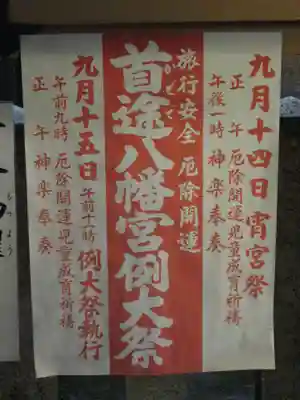 九月十四日 宵宮祭
正午 厄除開運児童成育祈祷
午後一時 神楽奉奏
旅行安全 厄除開運
首途八幡宮例大祭
かどで
九月十五日 午前十一時 例大祭執行
午前九時 厄除開運児童成育祈祷
正午 神楽奉奏